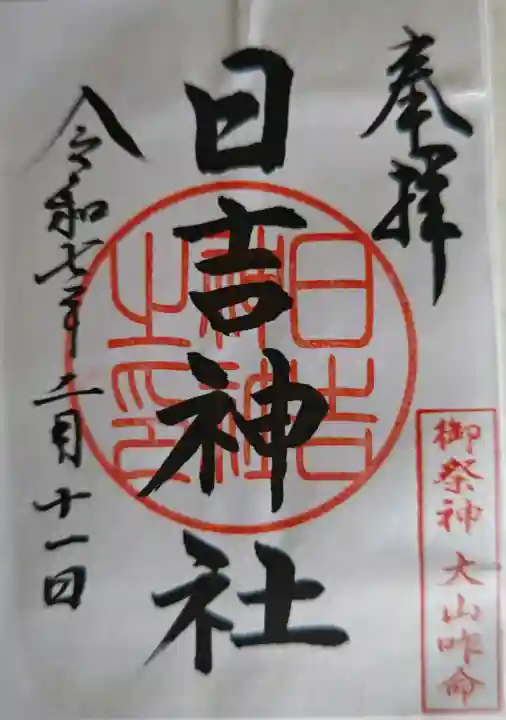 奉拝
御祭神 大山咋命
日吉神社
日吉神社之印
令和七年二月十一日